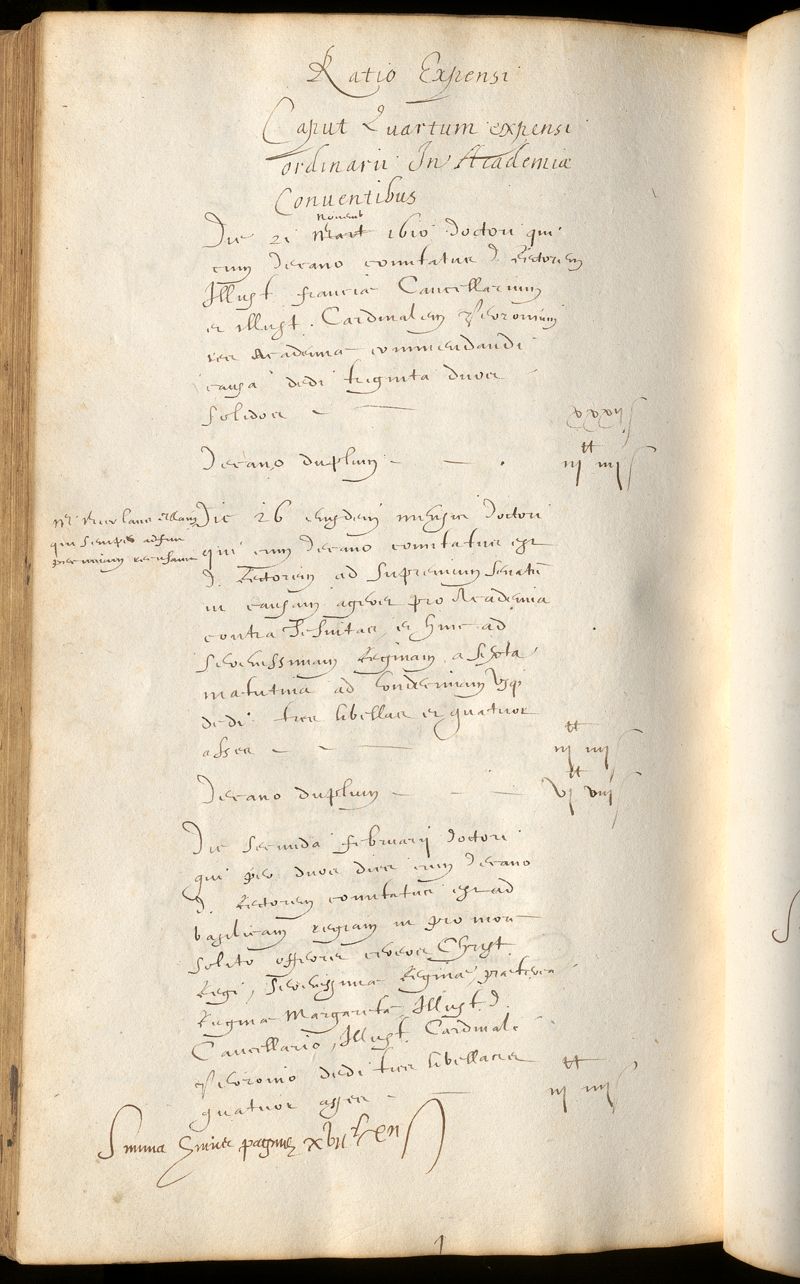 Ratio Expensi
Caput Quartum expensi
ordinarii In Academiæ
Conuentibus
Novemb
Die 21 Mart 1610 doctori qui
cum Decano comitatus D. Rectorem
Illust franciæ Cancellarium
et illust. Cardinalem Peronium
rei Academiæ commendandi
causa dedi triginta duos
solidos
xxxii s
Decano duplum
iii tt iiii s
qui semper
Die 26 eiusdem mensis doctori
qui cum Decano comitatus est
D. Rectorem ad supremum senatū
in causam ageret pro Academia
contra Jesuitas, et hinc ad
serenissimam Reginam, a sexta
matutina ad undecimam usq
dedi tres libellas et quatuor
asses
iii tt iiii s
Decano duplum
vi tt viii s
Die secunda februarii doctori
qui per duos dies cum Decano
D. Rectorem comitatus est ad
basilicam regiam ut pro more
solito offerret cereos Christ.
Regi, serenissimæ Reginæ, præterea
Reginæ Margaretæ, Illust. D.
Cancellario, Illust. Cardinali
Peronio dedi tres libellas et
quatuor asses
iii tt iiii s
Summa huius paginæ